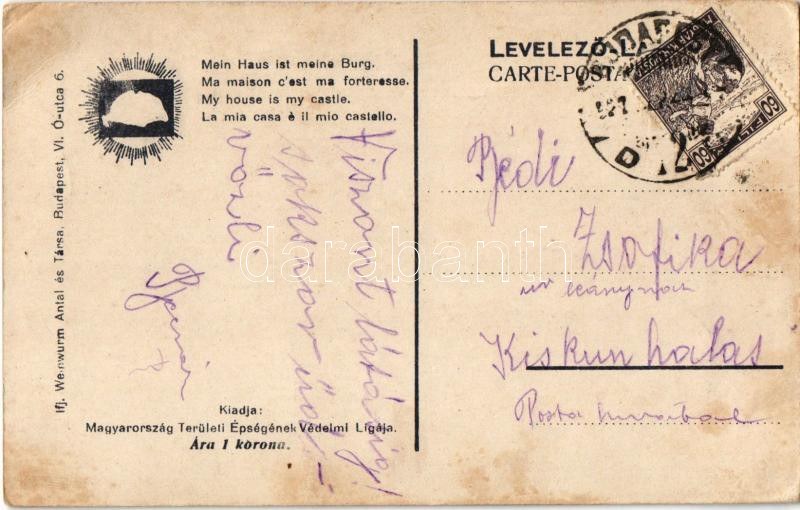 Mein Haus ist meine Burg.
Ma maison c'est ma forteresse.
My house is my castle.
La mia casa è il mio castello.
Ifj. Weinwurm Antal és Társa, Budapest, VI. Ó-utca 6.
Viszont látásig!
sokszor
Kiadja:
Magyarország Területi Épségének Védelmi Ligája.
Ára 1 korona.
LEVELEZŐ-L
CARTE-POSTA
BUDAPEST
60
FILLÉR
60
Zsofika
úr leánynak
Kiskunhalas
Posta
darabanth